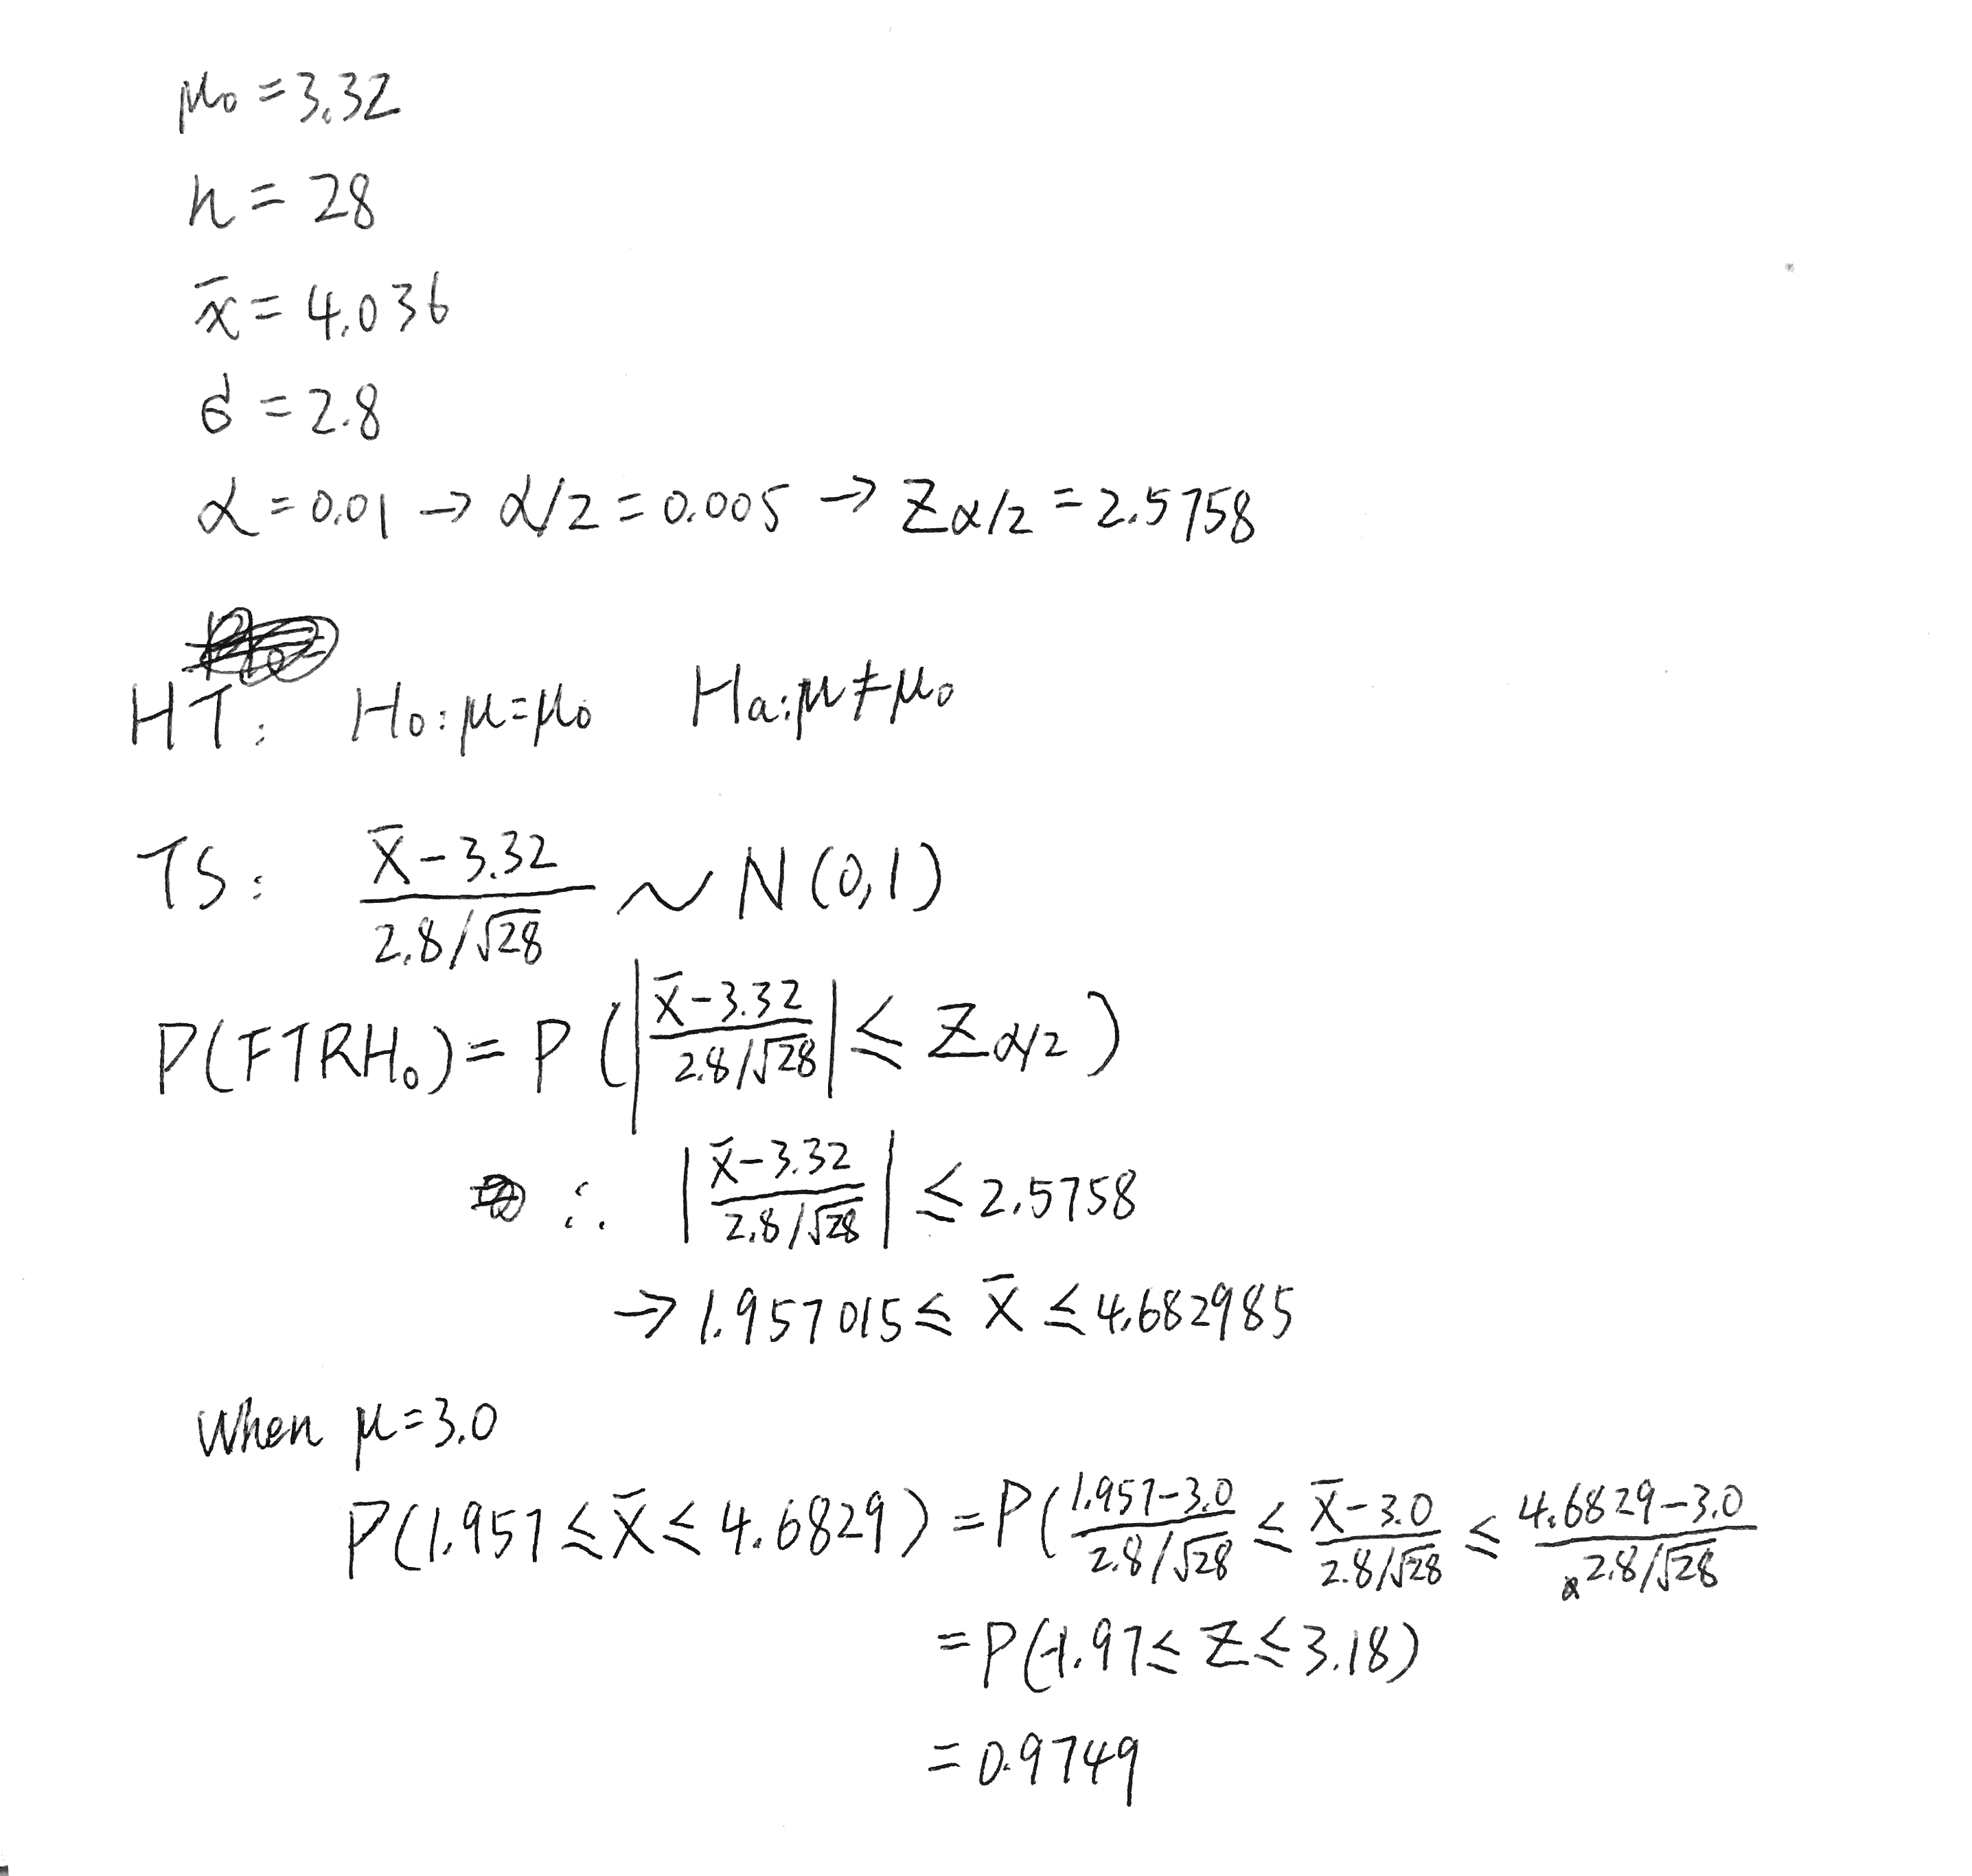 μ₀ = 3.32
n = 28
x̄ = 4.036
σ = 2.8
α = 0.01 → α/2 = 0.005 → Zα/2 = 2.5758
HT: H₀: μ = μ₀ Ha: μ ≠ μ₀
TS: (x̄ - 3.32)/(2.8/√28) ~ N(0,1)
P(FTRH₀) = P(|(x̄ - 3.32)/(2.8/√28)| ≤ Zα/2)
∴ |(x̄ - 3.32)/(2.8/√28)| ≤ 2.5758
→ 1.957015 ≤ x̄ ≤ 4.682985
When μ = 3.0
P(1.957 ≤ x̄ ≤ 4.6829) = P((1.957 - 3.0)/(2.8/√28) ≤ (x̄ - 3.0)/(2.8/√28) ≤ (4.6829 - 3.0)/(2.8/√28))
= P(-1.97 ≤ Z ≤ 3.18)
= 0.9749